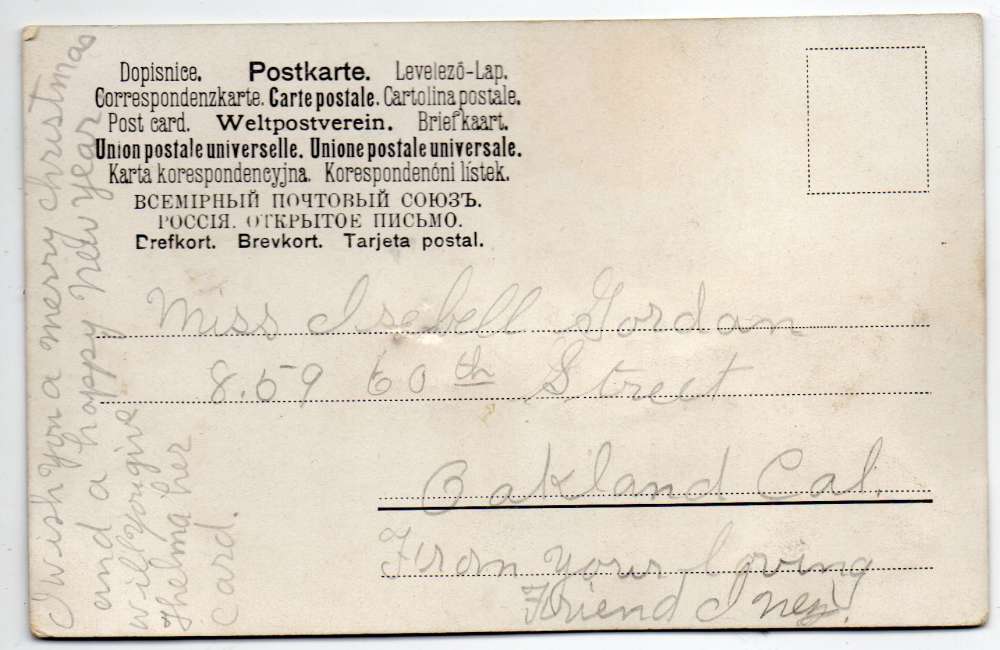 Dopisnice. Postkarte. Levelező-Lap.
Correspondenzkarte. Carte postale. Cartolina postale.
Post card. Weltpostverein. Briefkaart.
Union postale universelle. Unione postale universale.
Karta korespondencyjna. Korespondenčni lístek.
ВСЕМІРНЫЙ ПОЧТОВЫЙ СОЮЗЪ.
РОССІЯ. ОТКРЫТОЕ ПИСЬМО.
Brefkort. Brevkort. Tarjeta postal.
Miss Isebell Gordan
859 60th Street
Oakland Cal.
From your loving
Friend Inez!
I wish you a merry christmas
and a happy new year
will you give
Thelma her
card.